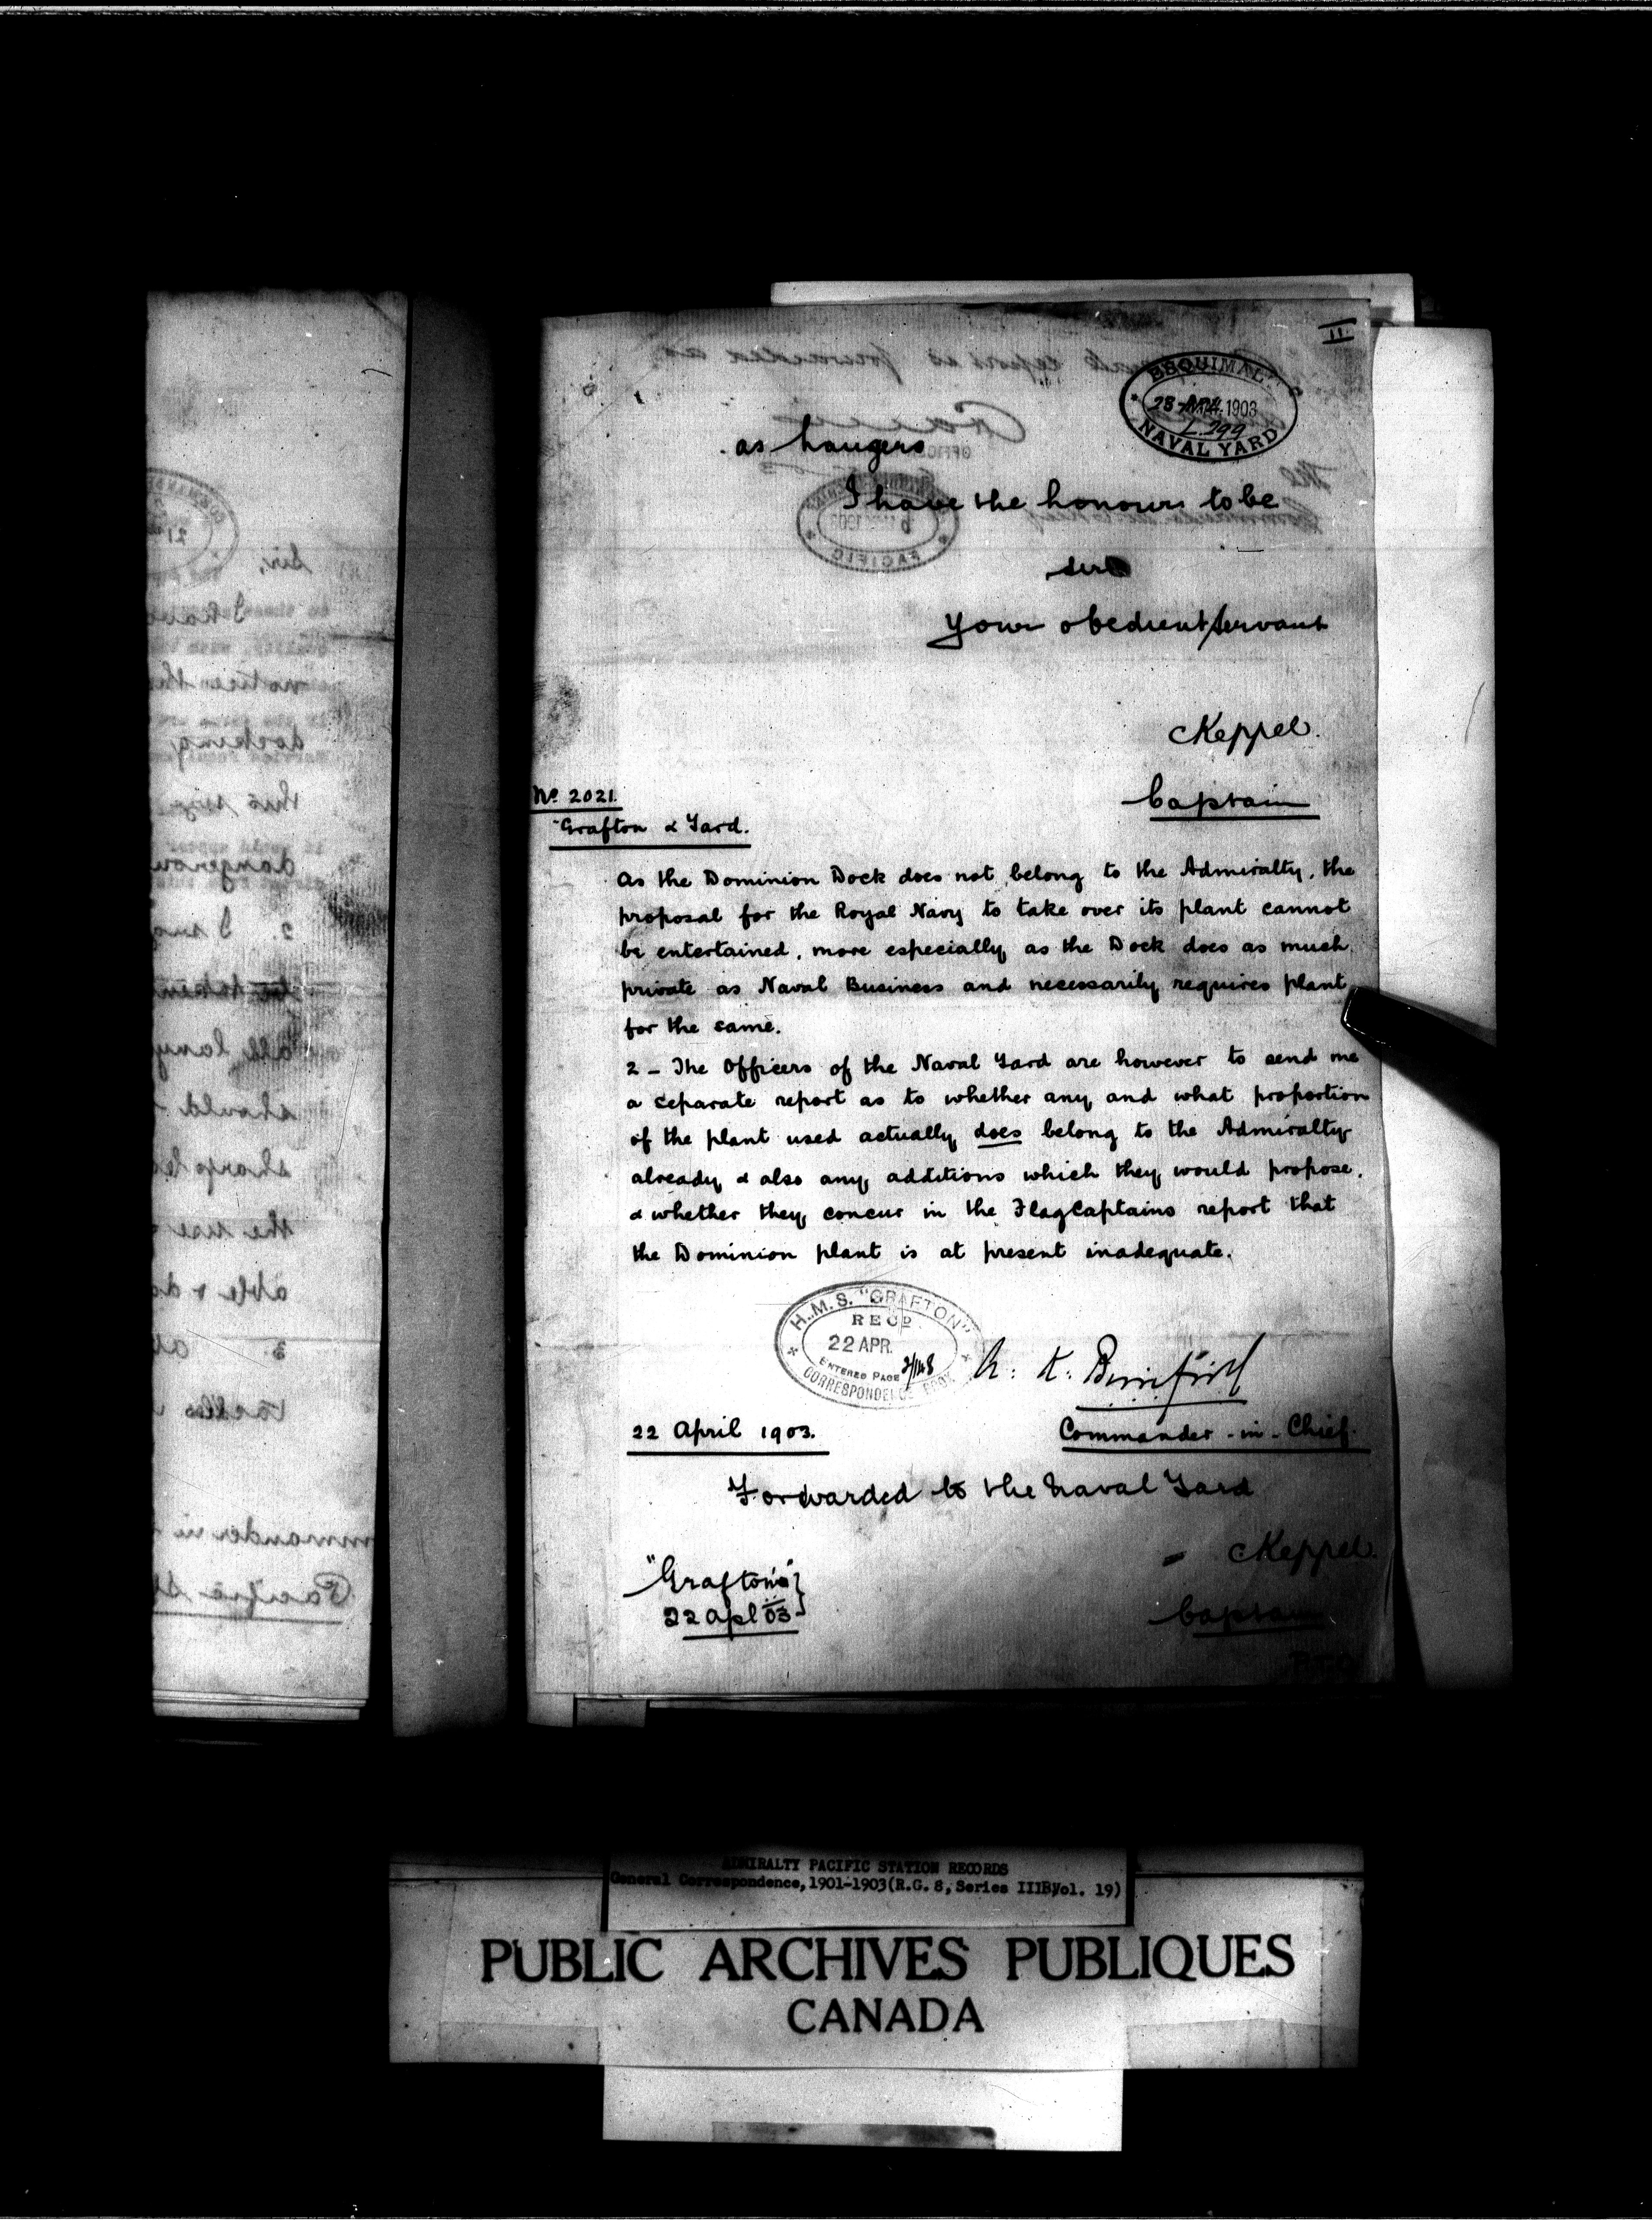 II.
ESQUIMALT
1903
L.299
NAVAL YARD
as hangers
I have the honour to be
Sir
Your obedient servant
CKeppel.
Captain
No. 2021.
"Grafton & Yard.
As the Dominion Dock does not belong to the Admiralty, the
proposal for the Royal Navy to take over its plant cannot
be entertained, more especially as the Dock does as much
private as Naval Business and necessarily requires plant
for the same.
2 - The Officers of the Naval Yard are however to send me
a separate report as to whether any and what proportion
of the plant used actually does belong to the Admiralty
already & also any additions which they would propose.
& whether they concur in the Flag Captains report that
the Dominion plant is at present inadequate.
H.M.S. "GRAFTON"
RECD.
22 APR.
ENTERED PAGE 2/148
CORRESPONDENCE BOOK
22 April 1903.
Commander-in-Chief.
Forwarded to the Naval Yard
CKeppel
"Grafton"
22 Apl 03
Captain
P.T.O.
ADMIRALTY PACIFIC STATION RECORDS
General Correspondence, 1901-1903 (R.G. 8, Series IIIB, Vol. 19)
PUBLIC ARCHIVES PUBLIQUES
CANADA